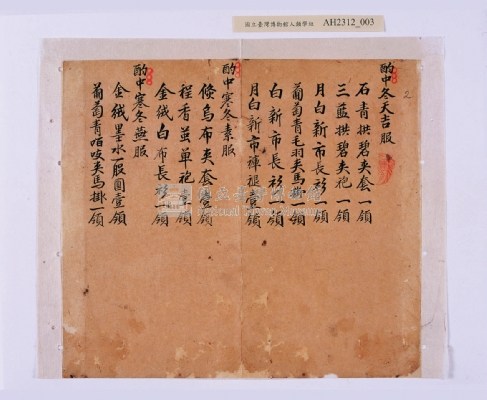 國立臺灣博物館人類學組 AH2312_003
2
酌中冬天吉服
石青拱碧夾套一領
三藍拱碧夾袍一領
月白新市長衫一領
葡萄青毛羽夾馬掛一領
白新市長衫一領
月白新市褲褪壹領
酌中寒冬素服
絛烏布夾套壹領
程香繭單袍壹領
金絨白布長衫一領
酌中寒冬燕服
金絨墨水一股圓壹領
葡萄青咱吱夾馬掛一領
國立臺灣博物館
National Taiwan Museum